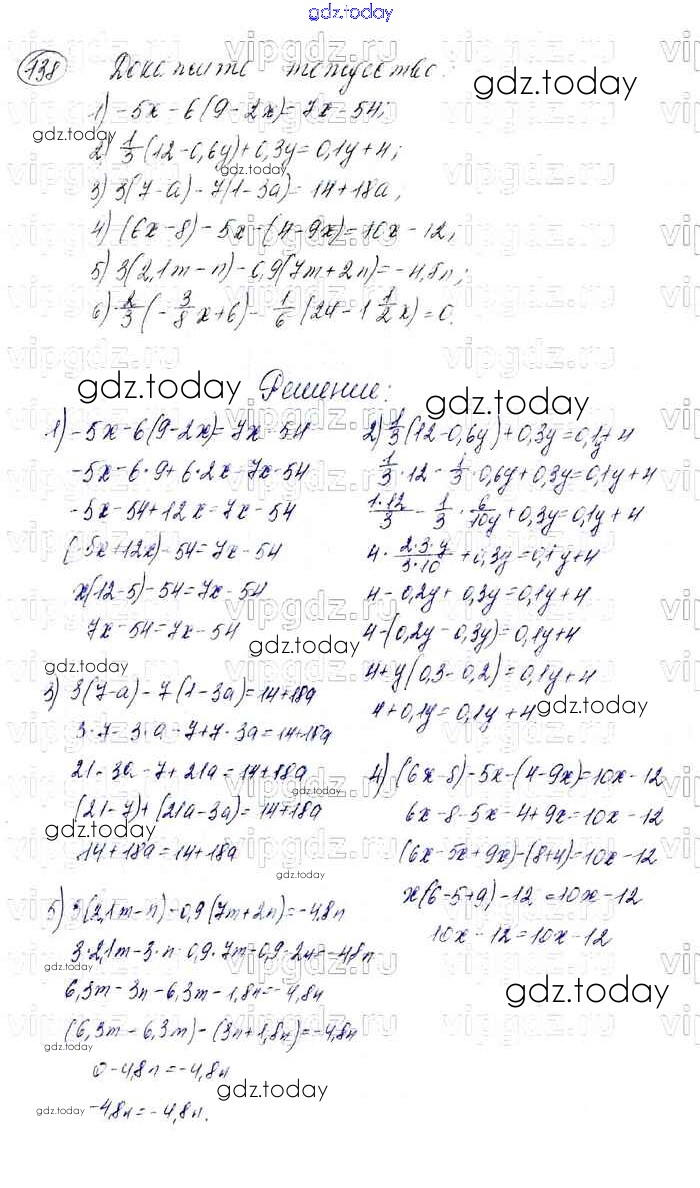 gdz.today
138 Докажите тождество:
1) -5x - 6(9-2x) = 7x - 54;
2) 1/3 (12-0,6y) + 0,3y = 0,1y + 4;
3) 3(7-a) - 7(1-3a) = 14 + 18a;
4) (6x-8) - 5x - (4-9x) = 10x - 12;
5) 3(2,1m - n) - 0,9(7m + 2n) = -4,8n;
6) 2/3 (-3/8 x + 6) - 1/6 (24 - 1 1/2 x) = 0.
Решение:
1) -5x - 6(9-2x) = 7x - 54
-5x - 6·9 + 6·2x = 7x - 54
-5x - 54 + 12x = 7x - 54
(-5x + 12x) - 54 = 7x - 54
x(12-5) - 54 = 7x - 54
7x - 54 = 7x - 54
2) 1/3 (12-0,6y) + 0,3y = 0,1y + 4
1/3 · 12 - 1/3 · 0,6y + 0,3y = 0,1y + 4
1·12/3 - 1/3 · 6/10y + 0,3y = 0,1y + 4
4 · 2·3·y/3·10 + 0,3y = 0,1y + 4
4 - 0,2y + 0,3y = 0,1y + 4
4 - (0,2y - 0,3y) = 0,1y + 4
4 + y(0,3 - 0,2) = 0,1y + 4
4 + 0,1y = 0,1y + 4
3) 3(7-a) - 7(1-3a) = 14 + 18a
3·7 - 3·a - 7 + 7·3a = 14 + 18a
21 - 3a - 7 + 21a = 14 + 18a
(21-7) + (21a-3a) = 14 + 18a
14 + 18a = 14 + 18a
4) (6x-8) - 5x - (4-9x) = 10x - 12
6x - 8 - 5x - 4 + 9x = 10x - 12
(6x - 5x + 9x) - (8+4) = 10x - 12
x(6-5+9) - 12 = 10x - 12
10x - 12 = 10x - 12
5) 3(2,1m - n) - 0,9(7m + 2n) = -4,8n
3·2,1m - 3·n - 0,9·7m - 0,9·2n = -4,8n
6,3m - 3n - 6,3m - 1,8n = -4,8n
(6,3m - 6,3m) - (3n + 1,8n) = -4,8n
0 - 4,8n = -4,8n
-4,8n = -4,8n.